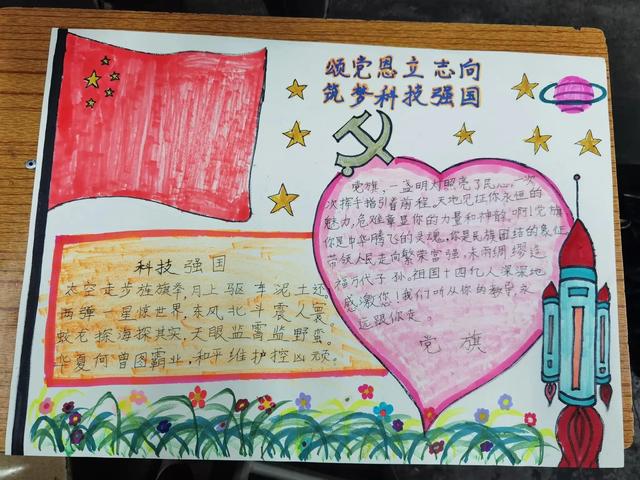 颂党恩立志向
筑梦科技强国
党旗，一盏明灯照亮了民心，一次
次挥手指引着前程。天地见证你永恒的
魅力，危难彰显你的力量和神韵。啊！党旗
你是中华腾飞的灵魂，你是民族团结的象征
带领人民走向繁荣富强，未雨绸缪造
福万代子孙。祖国十四亿人深深地
感激您！我们听从你的教导，永
远跟你走。
党旗
科技强国
太空走步旌旗牵，月上驱车泥土还。
两弹一星惊世界，东风北斗震人寰。
蛟龙探海探其实，天眼监雷监野蛮。
华夏何曾图霸业，和平维护控凶顽。